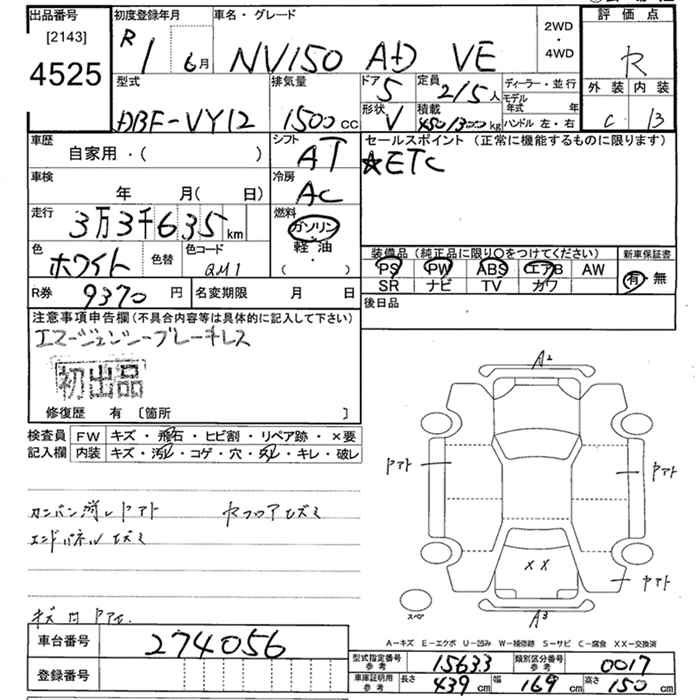 出品番号 初度登録年月 車名・グレード 2WD・4WD 評価点
[2143]
4525
R 1 6月 NV150 AD VE
型式 排気量 ドア 5 定員 2/5人 ディーラー・並行
DBF-VY12 1500cc 形状 V 積載 450/300kg モデル年式 年
ハンドル 左・右
外装 内装
C B
車歴 シフト セールスポイント(正常に機能するものに限ります)
自家用・( ) AT ★ETC
車検 冷房
年 月( 日) AC
走行 3万3千635km 燃料
ガソリン・軽油・( )
色 ホワイト 色替 色コード QM1
装備品(純正品に限り○をつけてください) 新車保証書
PS PW ABS エアB AW 有・無
SR ナビ TV カワ
R券 9370円 名変期限 月 日 後日品
注意事項申告欄(不具合内容等は具体的に記入して下さい)
エマージェンシーブレーキレス
初出品
修復歴 有 〔箇所 〕
検査員記入欄 FW キズ・飛石・ヒビ割・リペア跡・×要
内装 キズ・汚レ・コゲ・穴・スレ・キレ・破レ
A2
ヤアト ヤアト
カンバン消しヤアト
エンドパネル
XX
ヤアト
スペア
A3
車台番号 274056
登録番号
A-キズ E-エクボ U-凹み W-補修跡 S-サビ C-腐食 XX-交換済
型式指定番号 参考 15633 類別区分番号 参考 0017
車庫証明用 参考 長さ 439cm 幅 169cm 高さ 150cm